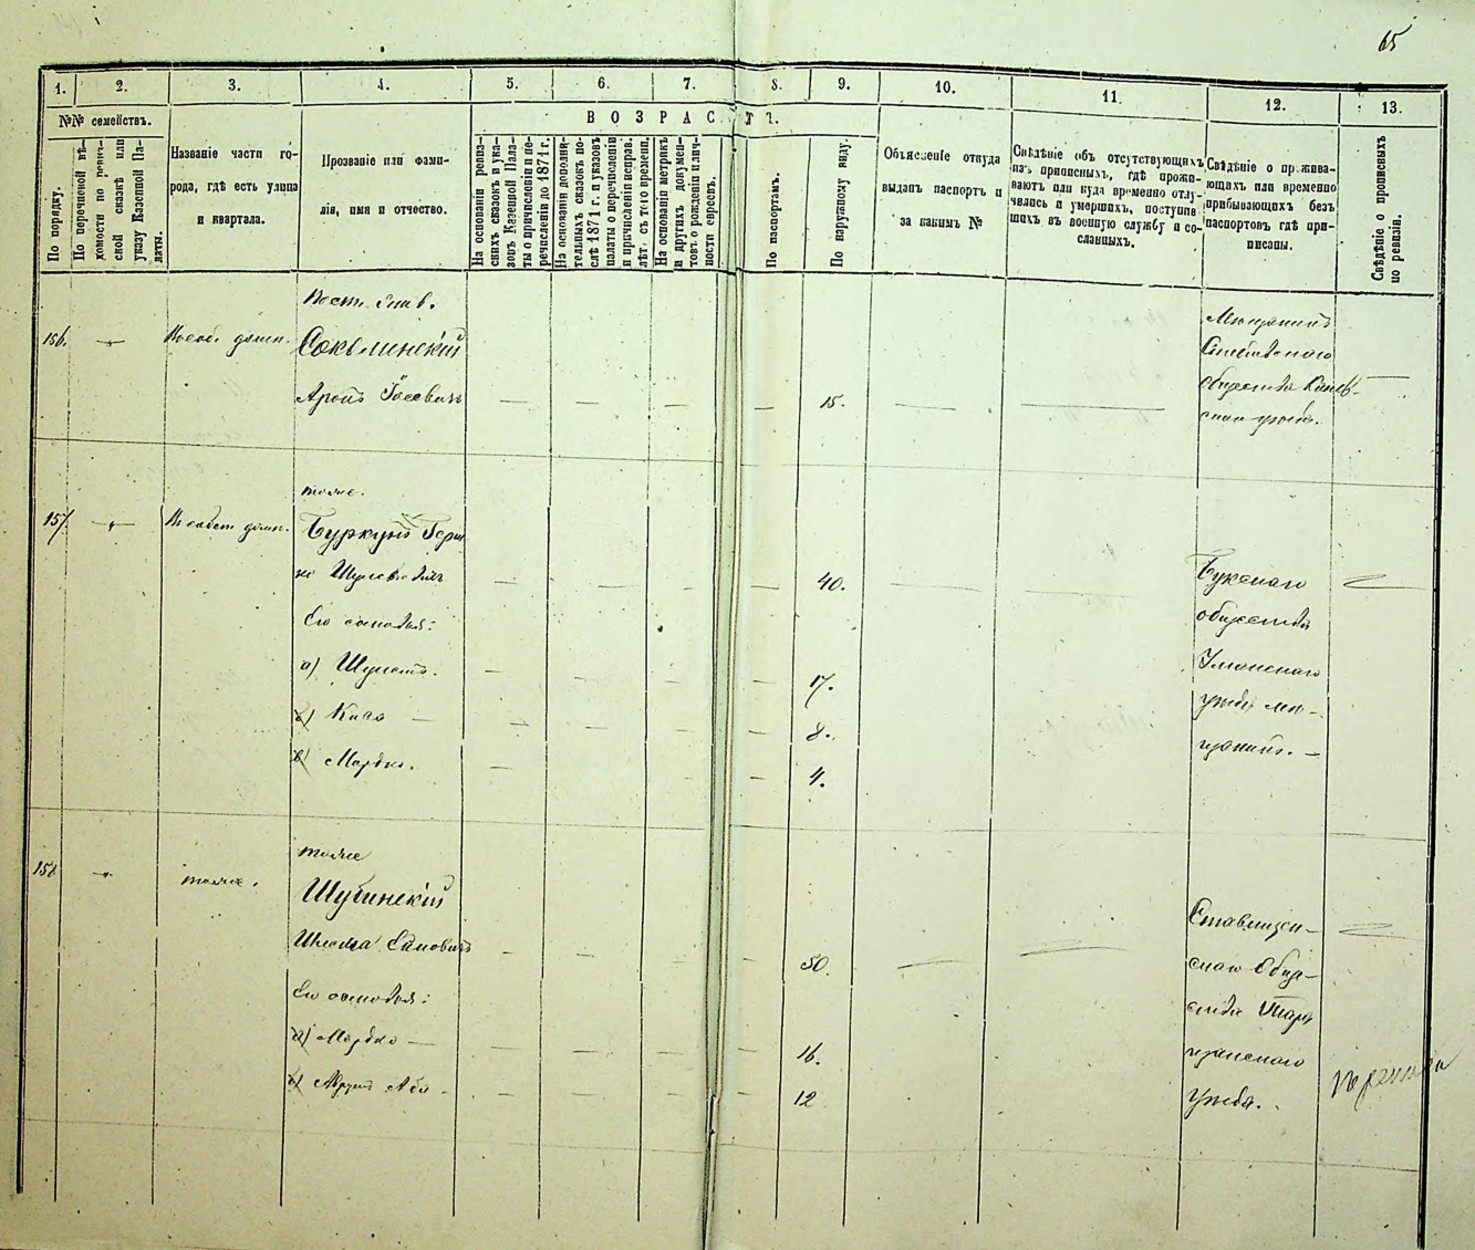 65
1. 2. 3. 4. 5. 6. 7. 8. 9. 10. 11. 12. 13.
№№ семействъ.
По порядку.
По перечневой вѣ-
домости по ревич-
ской сказкѣ или
указу Казенной Па-
латы.
Названіе части го-
рода, гдѣ есть улица
и квартала.
Прозваніе или фами-
лія, имя и отчество.
ВОЗРАСТЪ.
На основаніи ревиз-
скихъ сказокъ и ука-
зовъ Казенной Пала-
ты о причисленіи и пе-
речисленіи до 1871 г.
На основаніи дополни-
тельныхъ сказокъ по-
слѣ 1871 г. и указовъ
палаты о перечисленіи
и причисленіи исправ.
лѣтъ съ того времени.
На основаніи метрикъ
и другихъ докумен-
товъ о рожденіи и лич-
ности евреевъ.
По паспортамъ.
По наружному виду.
Объясненіе откуда
выданъ паспортъ и
за какимъ №
Свѣдѣніе объ отсутствующихъ
изъ приписныхъ, гдѣ прожи-
ваютъ или куда временно отлу-
чились и умершихъ, поступив
шихъ въ военную службу и со-
сланныхъ.
Свѣдѣніе о прожива-
ющихъ или временно
прибывающихъ безъ
паспортовъ гдѣ при-
писаны.
Свѣдѣніе о прописныхъ
по ревизіи.
156.
Аронъ
15.
Мещанинъ
общества Канев-
скаго уѣзда.
157.
тоже.
Буркунъ Герш
ко
40.
Его сыновья:
а) Шулемъ.
17.
8.
в) Мордко.
4.
Букскаго
общества
Уманскаго
уѣзда мѣ-
щанинъ.
158
тоже.
тоже
50.
Его сыновья:
а) Мордко
16.
12
Ставищен-
скаго Обще-
ства Тара
щанскаго
Уѣзда.